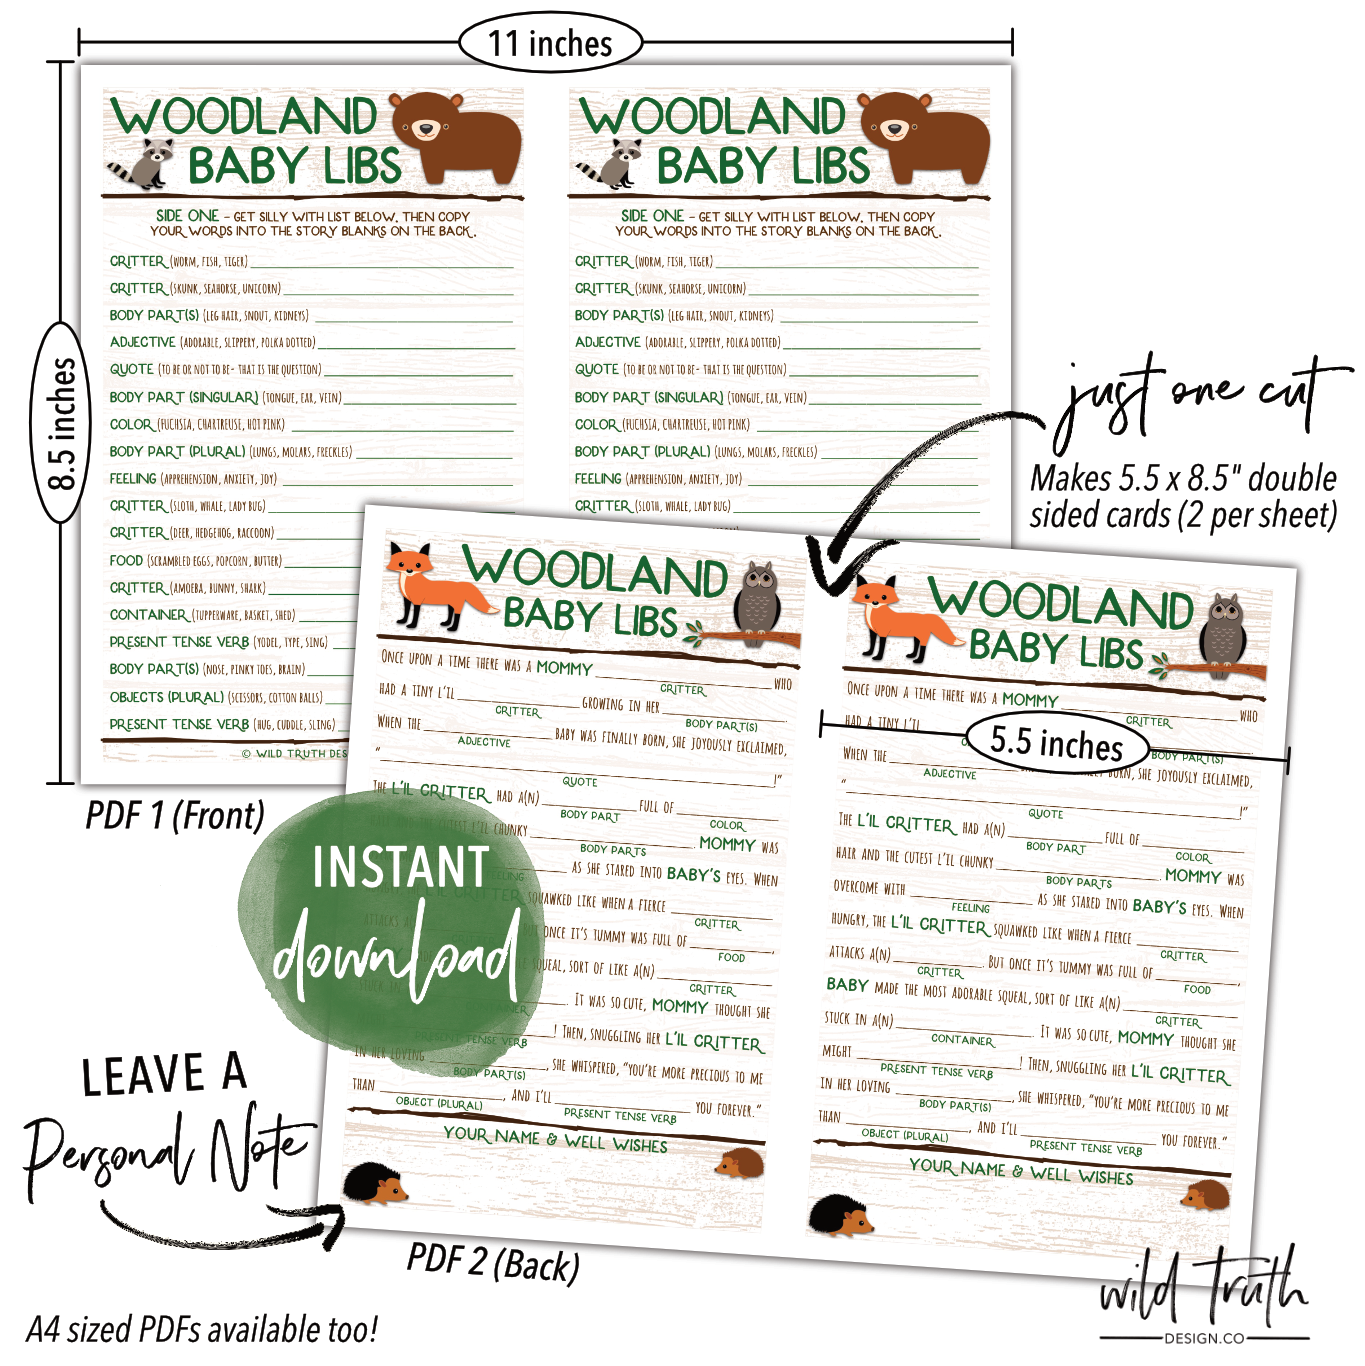 11 inches
8.5 inches
WOODLAND
BABY LIBS
SIDE ONE - GET SILLY WITH LIST BELOW. THEN COPY
YOUR WORDS INTO THE STORY BLANKS ON THE BACK.
CRITTER (WORM, FISH, TIGER)
CRITTER (SKUNK, SEAHORSE, UNICORN)
BODY PART(S) (LEG HAIR, SNOUT, KIDNEYS)
ADJECTIVE (ADORABLE, SLIPPERY, POLKA DOTTED)
QUOTE (TO BE OR NOT TO BE- THAT IS THE QUESTION)
BODY PART (SINGULAR) (TONGUE, EAR, VEIN)
COLOR (FUCHSIA, CHARTREUSE, HOT PINK)
BODY PART (PLURAL) (LUNGS, MOLARS, FRECKLES)
FEELING (APPREHENSION, ANXIETY, JOY)
CRITTER (SLOTH, WHALE, LADY BUG)
CRITTER (DEER, HEDGEHOG, RACCOON)
FOOD (SCRAMBLED EGGS, POPCORN, BUTTER)
CRITTER (AMOEBA, BUNNY, SHARK)
CONTAINER (TUPPERWARE, BASKET, SHED)
PRESENT TENSE VERB (YODEL, TYPE, SING)
BODY PART(S) (NOSE, PINKY TOES, BRAIN)
OBJECTS (PLURAL) (SCISSORS, COTTON BALLS)
PRESENT TENSE VERB (HUG, CUDDLE, SLING)
© WILD TRUTH DES
WOODLAND
BABY LIBS
SIDE ONE - GET SILLY WITH LIST BELOW. THEN COPY
YOUR WORDS INTO THE STORY BLANKS ON THE BACK.
CRITTER (WORM, FISH, TIGER)
CRITTER (SKUNK, SEAHORSE, UNICORN)
BODY PART(S) (LEG HAIR, SNOUT, KIDNEYS)
ADJECTIVE (ADORABLE, SLIPPERY, POLKA DOTTED)
QUOTE (TO BE OR NOT TO BE- THAT IS THE QUESTION)
BODY PART (SINGULAR) (TONGUE, EAR, VEIN)
COLOR (FUCHSIA, CHARTREUSE, HOT PINK)
BODY PART (PLURAL) (LUNGS, MOLARS, FRECKLES)
FEELING (APPREHENSION, ANXIETY, JOY)
CRITTER (SLOTH, WHALE, LADY BUG)
just one cut
Makes 5.5 x 8.5" double
sided cards (2 per sheet)
PDF 1 (Front)
WOODLAND
BABY LIBS
ONCE UPON A TIME THERE WAS A MOMMY WHO
CRITTER
HAD A TINY L'IL GROWING IN HER
CRITTER BODY PART(S)
WHEN THE BABY WAS FINALLY BORN, SHE JOYOUSLY EXCLAIMED,
ADJECTIVE
" !"
QUOTE
THE L'IL CRITTER HAD A(N) FULL OF
BODY PART COLOR
CUTEST L'IL CHUNKY . MOMMY WAS
BODY PARTS
AS SHE STARED INTO BABY'S EYES. WHEN
FEELING
CRITTER SQUAWKED LIKE WHEN A FIERCE
CRITTER
ATTACKS ONCE IT'S TUMMY WAS FULL OF ,
FOOD
SQUEAL, SORT OF LIKE A(N)
CRITTER
STUCK IN . IT WAS SO CUTE, MOMMY THOUGHT SHE
! THEN, SNUGGLING HER L'IL CRITTER
PRESENT TENSE VERB
IN HER LOVING , SHE WHISPERED, "YOU'RE MORE PRECIOUS TO ME
BODY PART(S)
THAN , AND I'LL YOU FOREVER."
OBJECT (PLURAL) PRESENT TENSE VERB
YOUR NAME & WELL WISHES
WOODLAND
BABY LIBS
ONCE UPON A TIME THERE WAS A MOMMY WHO
CRITTER
HAD A TINY L'IL
BODY PART(S)
5.5 inches
WHEN THE BORN, SHE JOYOUSLY EXCLAIMED,
ADJECTIVE
" !"
QUOTE
THE L'IL CRITTER HAD A(N) FULL OF
BODY PART COLOR
HAIR AND THE CUTEST L'IL CHUNKY . MOMMY WAS
BODY PARTS
OVERCOME WITH AS SHE STARED INTO BABY'S EYES. WHEN
FEELING
HUNGRY, THE L'IL CRITTER SQUAWKED LIKE WHEN A FIERCE
CRITTER
ATTACKS A(N) . BUT ONCE IT'S TUMMY WAS FULL OF ,
CRITTER FOOD
BABY MADE THE MOST ADORABLE SQUEAL, SORT OF LIKE A(N)
CRITTER
STUCK IN A(N) . IT WAS SO CUTE, MOMMY THOUGHT SHE
CONTAINER
MIGHT ! THEN, SNUGGLING HER L'IL CRITTER
PRESENT TENSE VERB
IN HER LOVING , SHE WHISPERED, "YOU'RE MORE PRECIOUS TO ME
BODY PART(S)
THAN , AND I'LL YOU FOREVER."
OBJECT (PLURAL) PRESENT TENSE VERB
YOUR NAME & WELL WISHES
INSTANT
download
LEAVE A
Personal Note
PDF 2 (Back)
A4 sized PDFs available too!
wild truth
DESIGN.CO